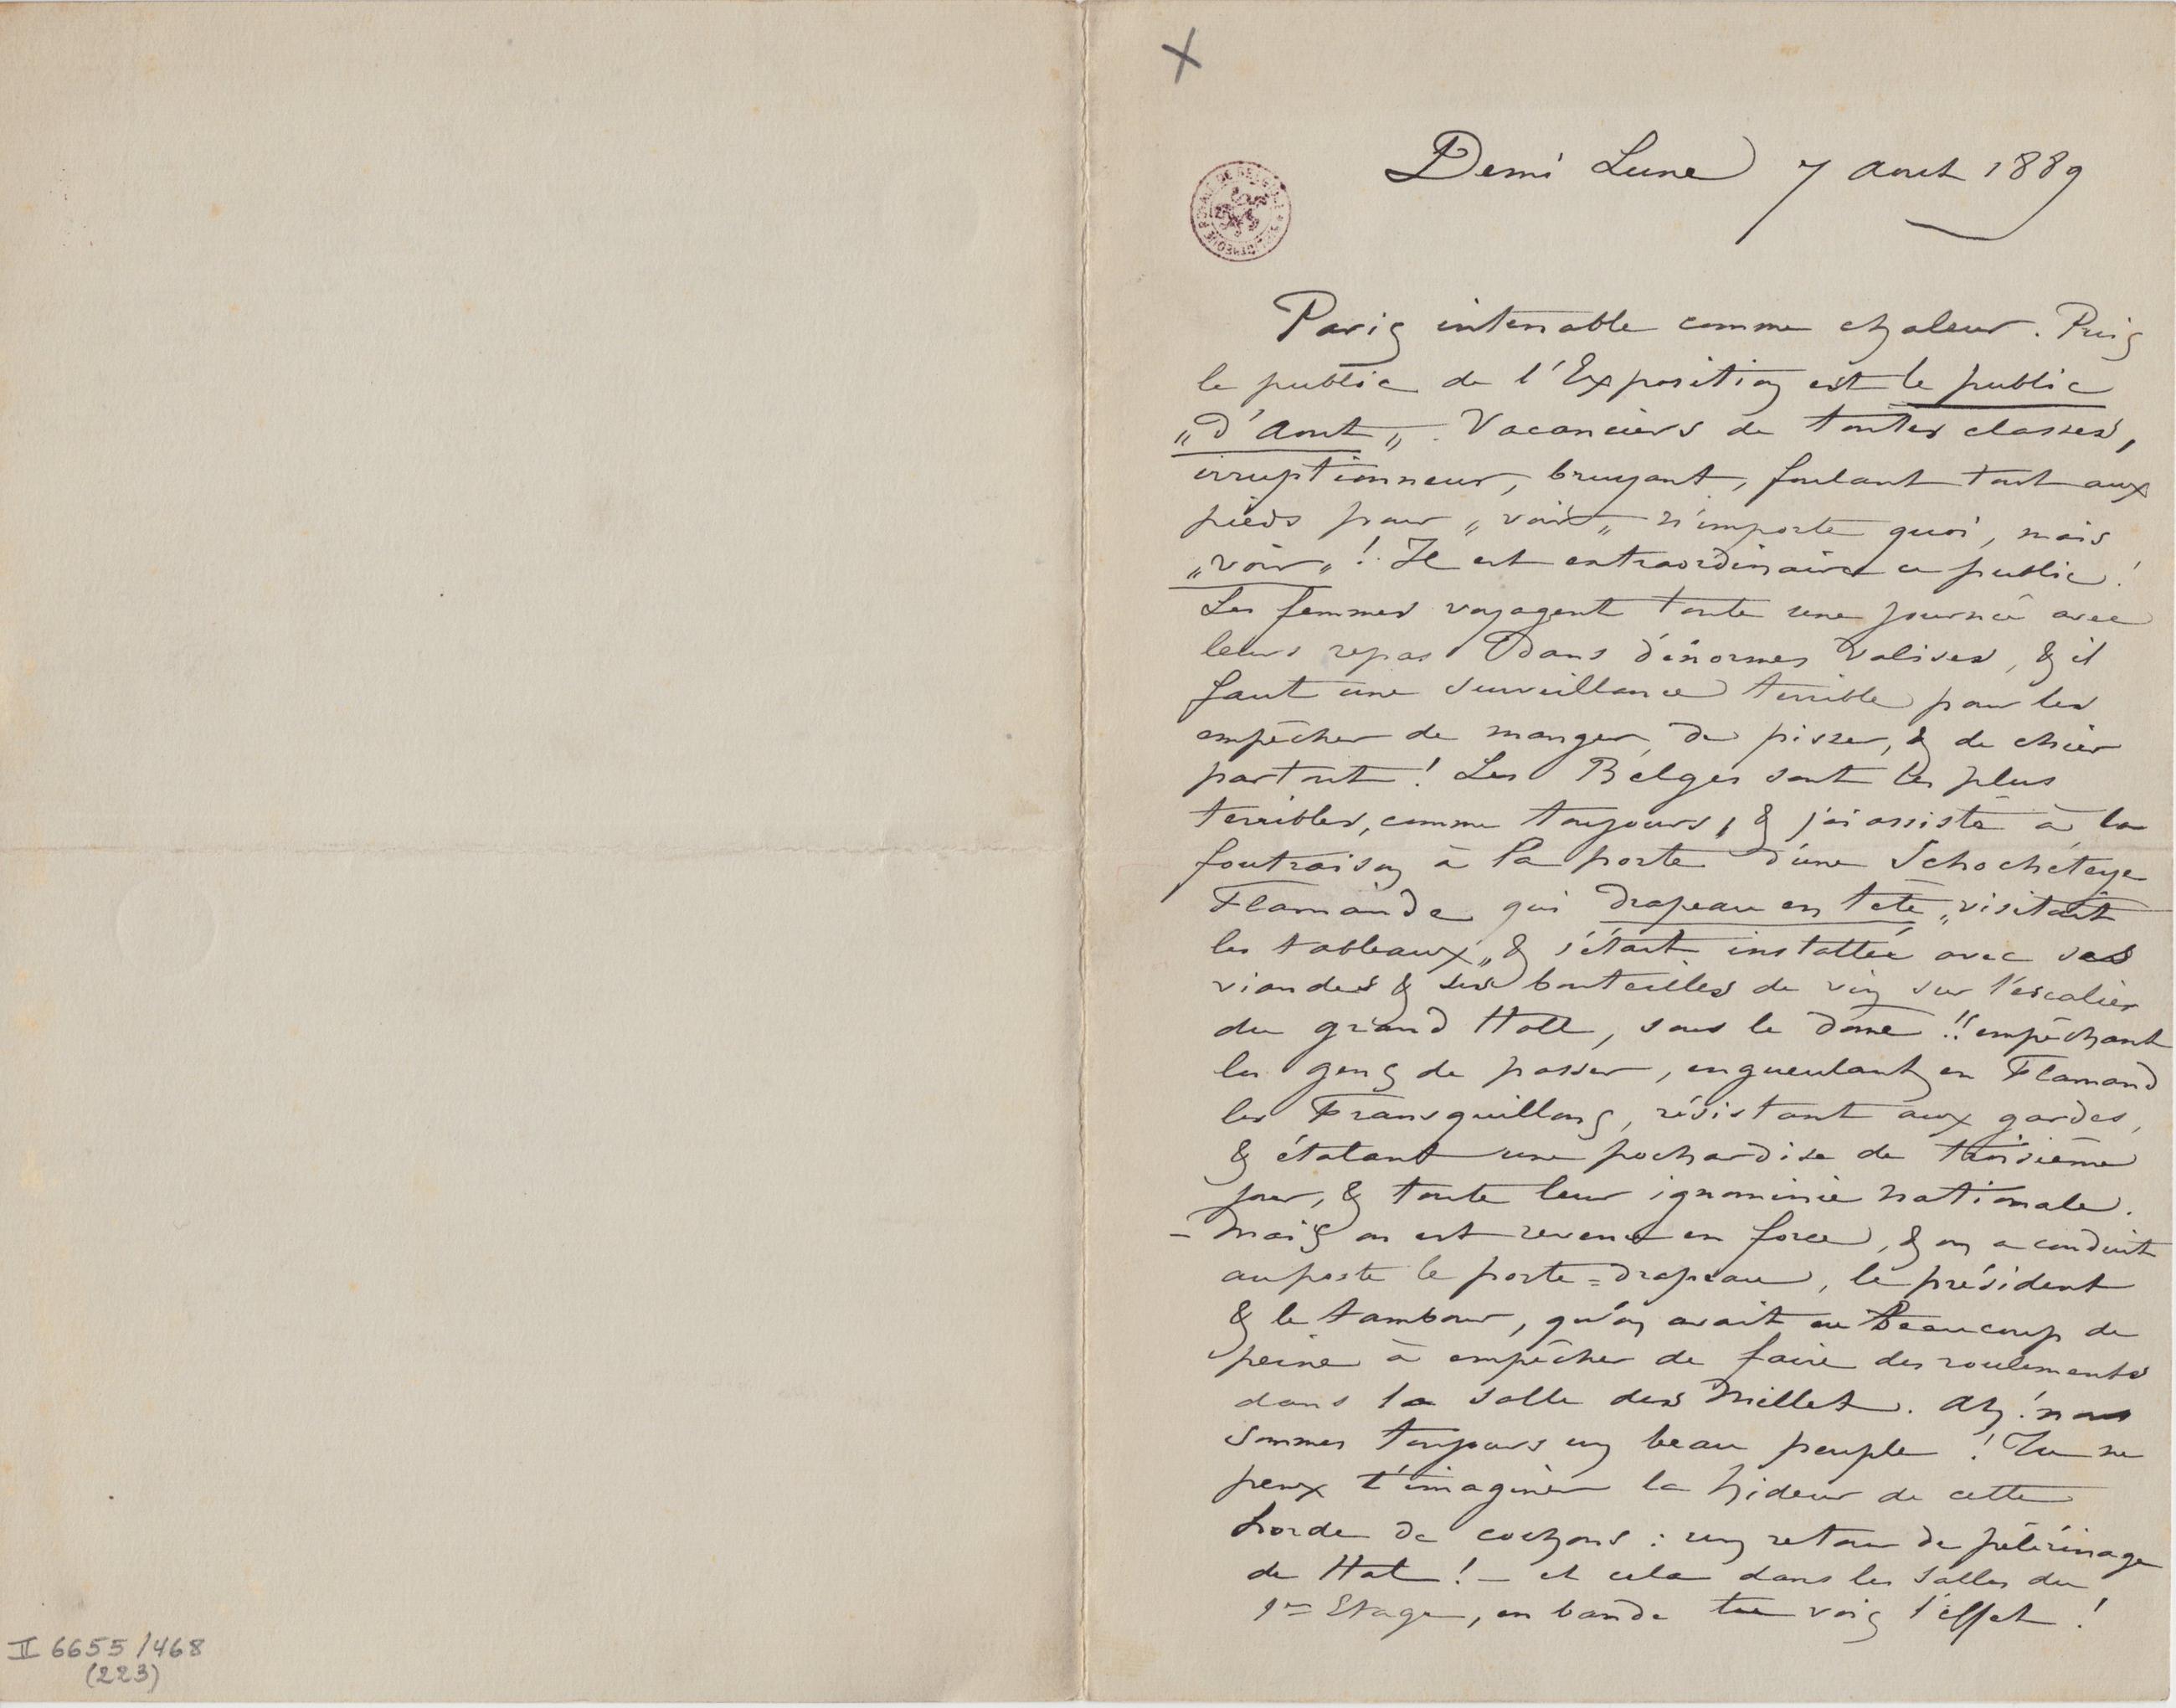 X
Demi Lune 7 Aout 1889
Paris intenable comme chaleur. Puis
le public de l'Exposition est le public
„d'Aout„. Vacanciers de toutes classes,
irruptionneur, bruyant, foulant tout aux
pieds pour „voir„ n'importe quoi, mais
„voir„! Il est extraordinaire ce public!
Les femmes voyagent toute une journée avec
leurs repas dans d'énormes valises, & il
faut une surveillance terrible pour les
empêcher de manger, de pisser, & de chier
partout! Les Belges sont les plus
terribles, comme toujours, & j'ai assisté à la
foutraison à la porte d'une Schochéteye
Flamande qui drapeau en tête „visitait
les tableaux„ & s'était installée avec ses
viandes & ses bouteilles de vin sur l'escalier
du grand Hall, sous le dome!! empêchant
les gens de passer, engueulant en Flamand
les Fransquillons, résistant aux gardes,
& étalant une pochardise de troisième
jour, & toute leur ignominie nationale.
– Mais on est revenu en force, & on a conduit
au poste le porte=drapeau, le président
& le tambour, qu'on avait eu beaucoup de
peine à empêcher de faire des roulements
dans la salle des Millet. Ah! nous
sommes toujours un beau peuple! Tu ne
peux t'imaginer la hideur de cette
horde de cochons: un retour de pélérinage
de Hal! – et cela dans les salles du
1er Etage, en bande tu vois l'effet!
II 6655/468
(223)